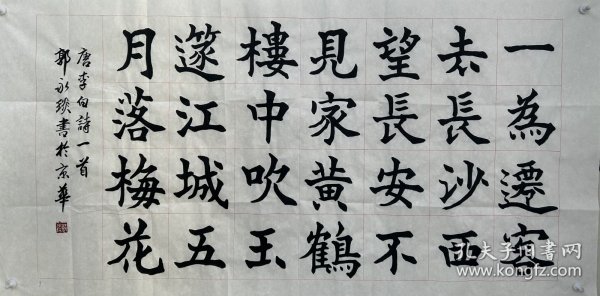 一為遷客
去長沙西
望長安不
見家黃鶴
樓中吹玉
篴江城五
月落梅花
唐李白詩一首
郭永琰書於京華
孔夫子旧书网
www.kongfz.com